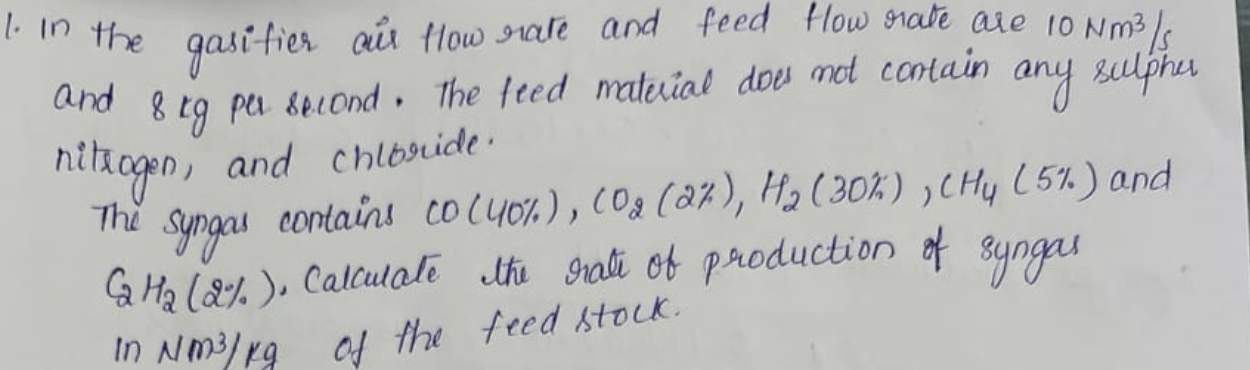 1. In the gasifier air flow rate and feed flow rate are 10 Nm³/s
and 8 kg per second. The feed material does not contain any sulpher
nitrogen, and chloride.
The syngas contains CO (40%), CO₂ (2%), H₂ (30%), CH₄ (5%) and
C₂H₂ (2%). Calculate the rate of production of syngas
in Nm³/kg of the feed stock.